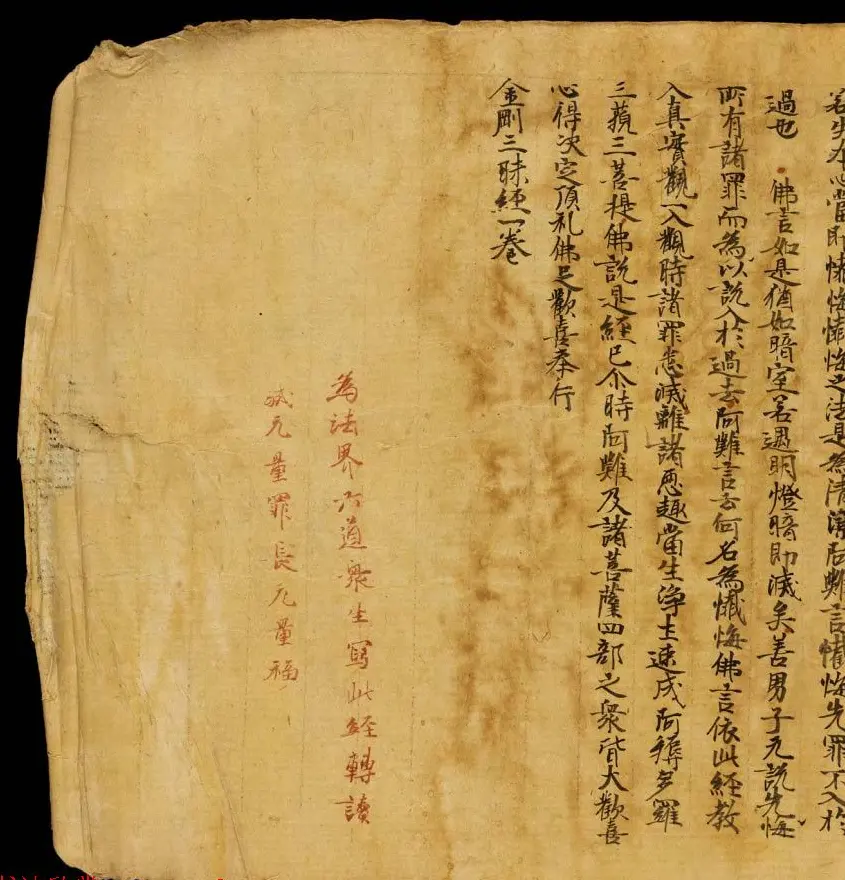 若失本心當即懺悔懺悔之法是為清涼阿難言懺悔先罪不入於
過也 佛言如是猶如暗室若遇明燈暗即滅矣善男子无說先悔
所有諸罪而為以說入於過去阿難言云何名為懺悔佛言依此經教
入真實觀一入觀時諸罪悉滅離諸惡趣當生淨土速成阿耨多羅
三藐三菩提佛說是經已尒時阿難及諸菩薩四部之衆皆大歡喜
心得决定頂礼佛足歡喜奉行
金剛三昧經一卷
為法界六道衆生寫此經轉讀
滅元量罪長元量福